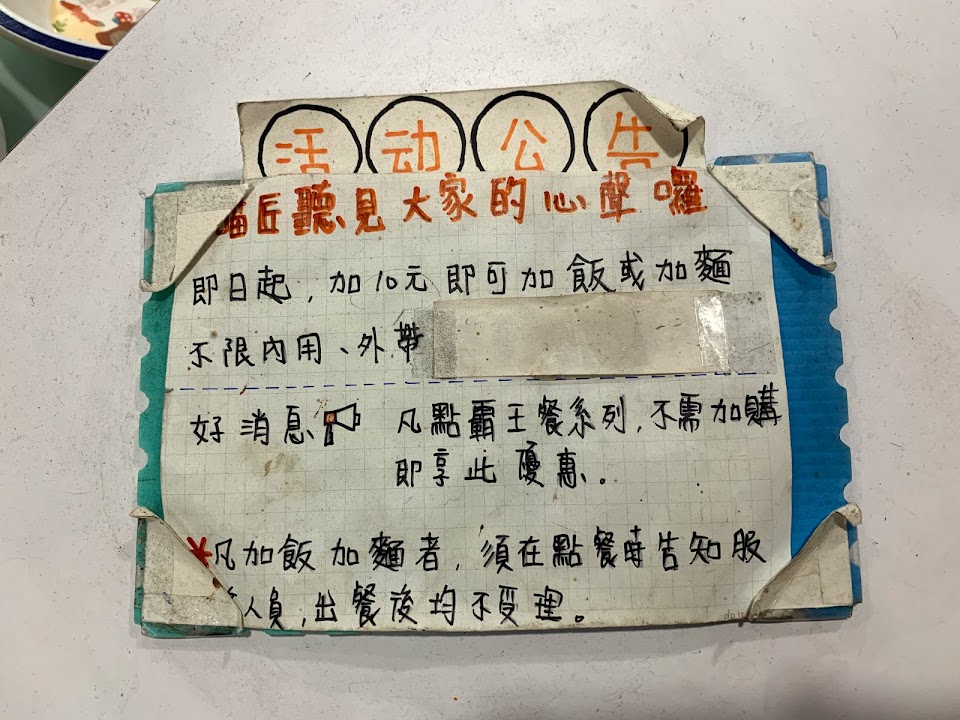 活动公告
匠聽見大家的心聲囉
即日起,加10元即可加飯或加麵
不限內用、外帶
好消息 凡點霸王餐系列,不需加購
即享此優惠。
*凡加飯加麵者,須在點餐時告知服
人員,出餐後均不受理。